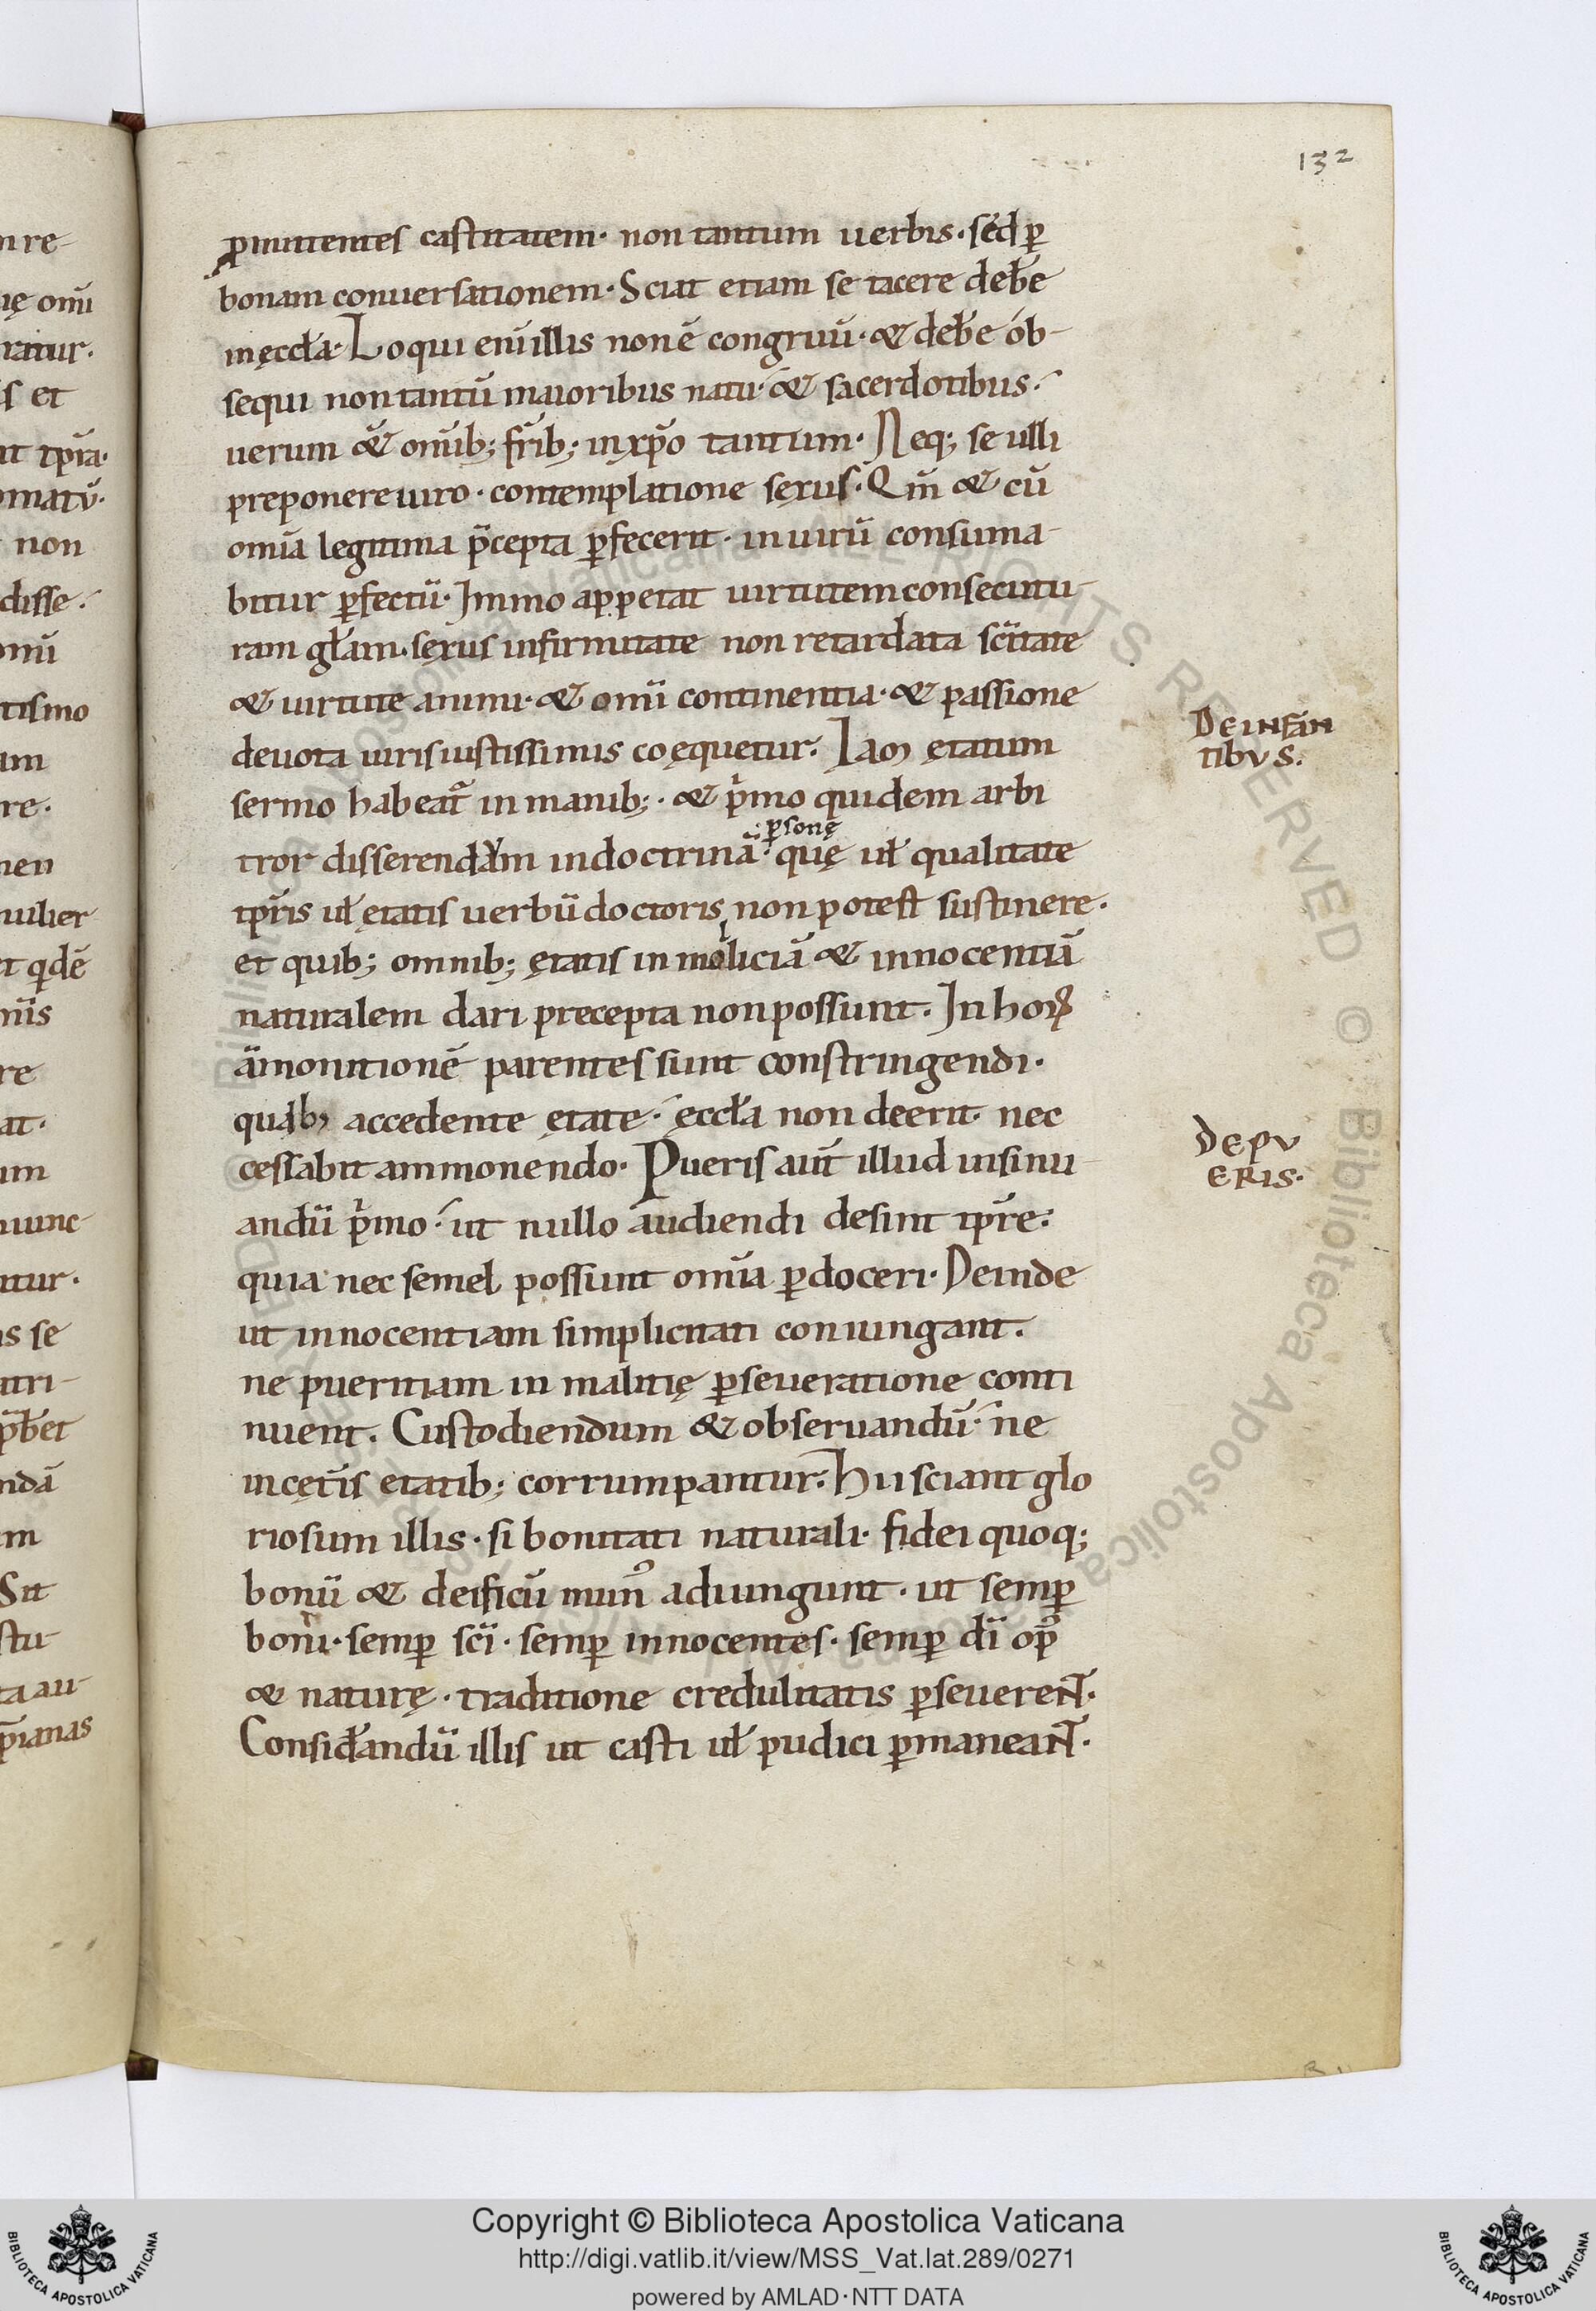 132
ꝓmittentes castitatem· non tantum uerbis· sed ꝑ
bonam conuersationem· Sciat etiam se tacere deb̄e
in ęccła· Loqui enī illis non ē congruū· & deb̄e ob-
sequi non tantū maioribus natu· & sacerdotibus·
uerum & om̄ib; fr̄ib; in xp̄o tantum· Neq; se ulli
preponere uiro· contemplatione sexus· Qm̄ & cū
om̄ia legitima p̄cepta ꝑfecerit· in uirū consuma-
bitur ꝑfectū· Immo appetat uirtutem consecutu-
ram gl̄am· sexus infirmitate non retardata sc̄itate
& uirtute animi· & om̄i continentia· & passione
deuota uiris iustissimis coęquetur· Iam ętatum
sermo habeat᷑ in manib;· & p̄mo quidem arbi
tror disserendam in doctrinā· ꝑsonę quę uł qualitate
tp̄ris uł ętatis uerbū doctoris non potest sustinere·
et quib; omnib; ętatis in maliciā & innocentiā
naturalem dari precepta non possunt· In hoꝝ
āmonitionē parentes sunt constringendi·
quib; accedente ętate· ęccła non deerit· nec
cessabit ammonendo· Pueris aut̄ illud insinu-
andū p̄mo· ut nullo audiendi desint tp̄re·
quia nec semel possunt om̄ia ꝑdoceri· Deinde
ut innocentiam simplicitati coniungant·
ne pueritiam in malitię ꝑseueratione conti
nuent· Custodiendum & obseruandū· ne
in cęt̄is etatib; corrumpantur· Hii sciant glo
riosum illis· si bonitati naturali· fidei quoq;
bonū & deificū mun᷒ adiungunt· ut semꝑ
boni· semꝑ sc̄i· semꝑ innocentes· semꝑ dī op̄
& naturę· traditione credulitatis ꝑseuerent·
Considerandū illis ut casti uł pudici ꝑmaneant·
DE INFAN
TIBVS·
DE PV
ERIS·
Copyright © Biblioteca Apostolica Vaticana
http://digi.vatlib.it/view/MSS_Vat.lat.289/0271
powered by AMLAD·NTT DATA